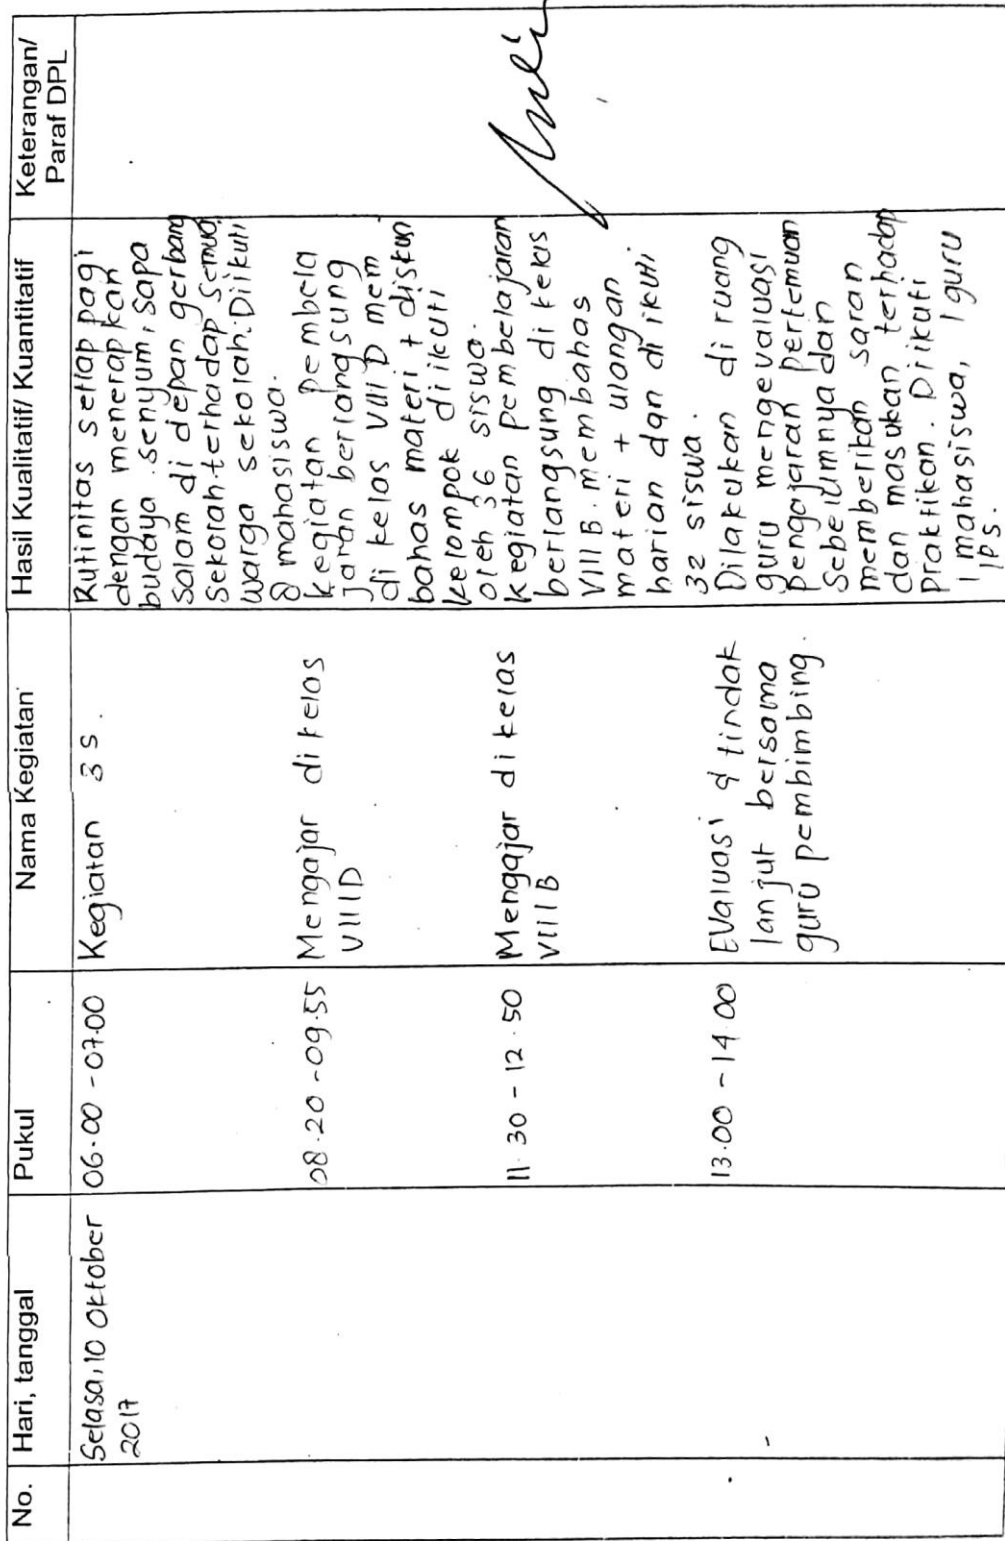 No.
Hari, tanggal
Pukul
Nama Kegiatan
Hasil Kualitatif/ Kuantitatif
Keterangan/
Paraf DPL
Selasa, 10 Oktober
2017
06.00 - 07.00
Kegiatan 3 S.
Rutinitas setiap pagi
dengan menerapkan
budaya senyum, sapa
salam di depan gerbang
sekolah terhadap semua
warga sekolah. Diikuti
8 mahasiswa.
08.20 - 09.55
Mengajar di kelas
VIII D
Kegiatan pembela
jaran berlangsung
di kelas VIII D mem
bahas materi + diskusi
kelompok diikuti
oleh 36 siswa.
11.30 - 12.50
Mengajar di kelas
VIII B
kegiatan pembelajaran
berlangsung di kelas
VIII B. membahas
materi + ulangan
harian dan diikuti
32 siswa.
13.00 - 14.00
Evaluasi & tindak
lanjut bersama
guru pembimbing.
Dilakukan di ruang
guru mengevaluasi
pengajaran pertemuan
sebelumnya dan
memberikan saran
dan masukan terhadap
praktikan. Diikuti
1 mahasiswa, 1 guru
IPS.